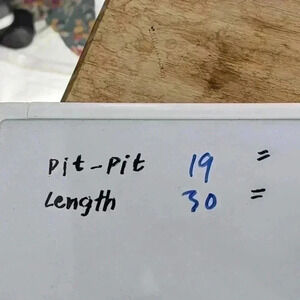 Pit-Pit 19 =
Length 30 =